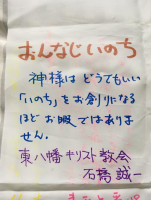 おんなじいのち
神様は どうでもいい
「いのち」をお創りになる
ほどお暇ではありま
せん。
東八幡キリスト教会
石橋誠一